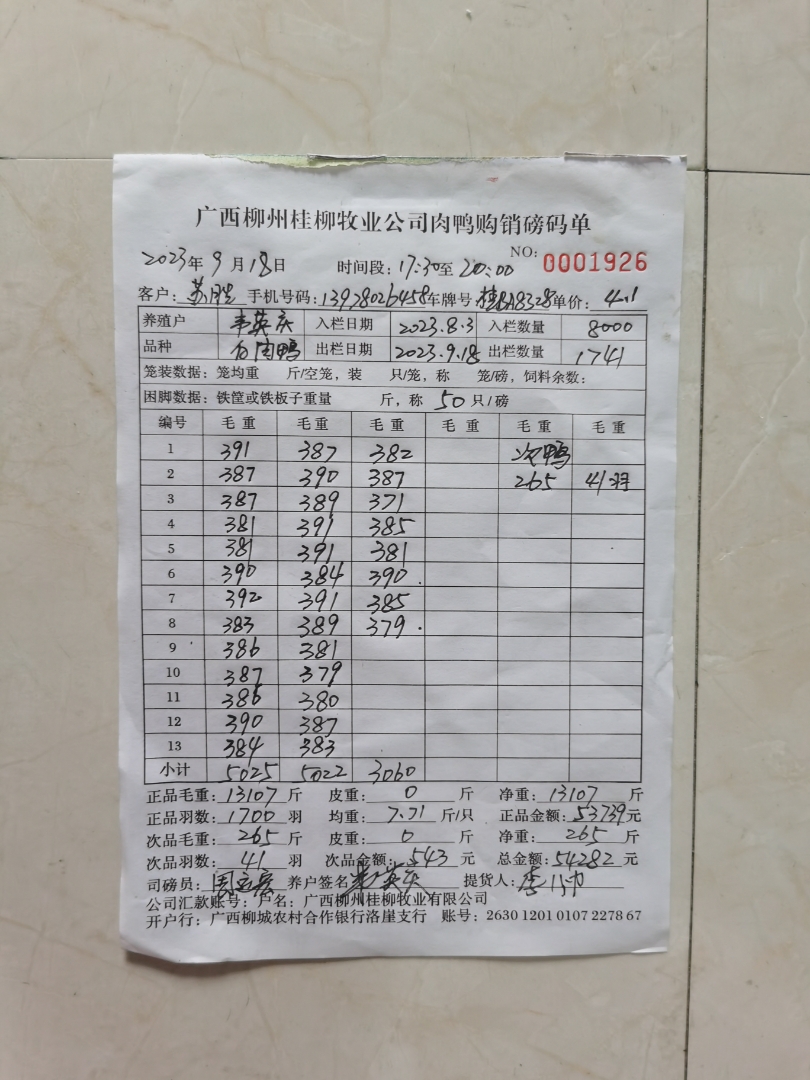 广西柳州桂柳牧业公司肉鸭购销磅码单
NO: 0001926
2023年 9月 18日 时间段: 17:30至 20:00
客户: 苏胜 手机号码: 13978026458 车牌号 桂BA8328 单价: 4.1
养殖户 韦英庆 入栏日期 2023.8.3 入栏数量 8000
品种 白肉鸭 出栏日期 2023.9.18 出栏数量 1741
笼装数据: 笼均重 斤/空笼, 装 只/笼, 称 笼/磅, 饲料余数:
困脚数据: 铁筐或铁板子重量 斤, 称 50 只/磅
编号 毛重 毛重 毛重 毛重 毛重 毛重
1 391 387 382 次鸭
2 387 390 387 265 41羽
3 387 389 371
4 381 391 385
5 381 391 381
6 390 384 390
7 392 391 385
8 383 389 379
9 386 381
10 387 379
11 386 380
12 390 387
13 384 383
小计 5025 5022 3060
正品毛重: 13107 斤 皮重: 0 斤 净重: 13107 斤
正品羽数: 1700 羽 均重: 7.71 斤/只 正品金额: 53739元
次品毛重: 265 斤 皮重: 0 斤 净重: 265 斤
次品羽数: 41 羽 次品金额: 543 元 总金额: 54282 元
司磅员: 养户签名 韦英庆 提货人:
公司汇款账号: 户名: 广西柳州桂柳牧业有限公司
开户行: 广西柳城农村合作银行洛崖支行 账号: 2630 1201 0107 2278 67